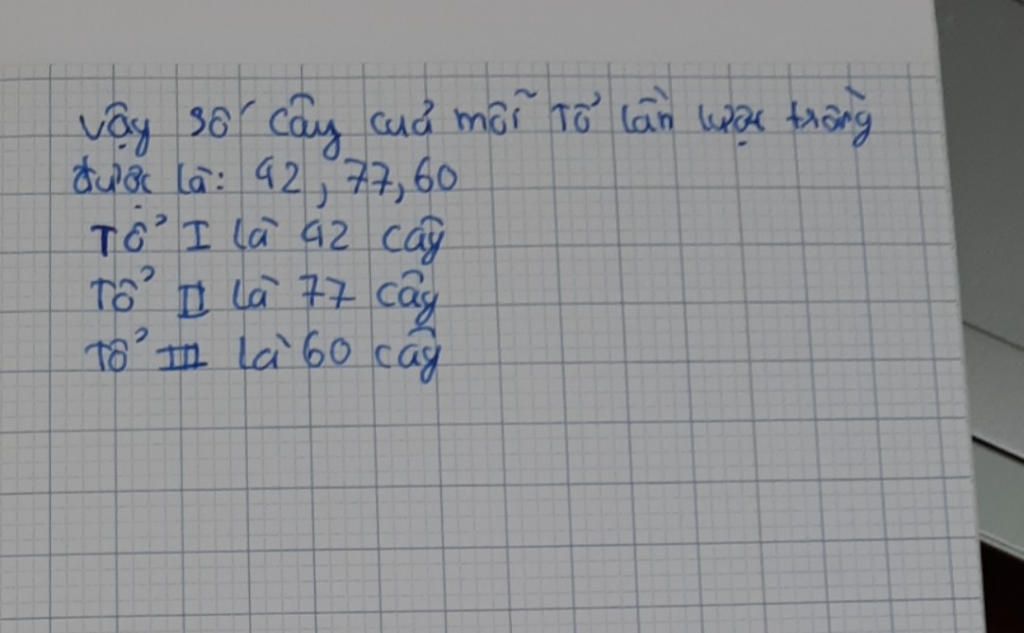 Vậy số cây cuả mỗi Tổ lần lượt trồng
được là: 92, 77, 60
Tổ I là 92 cây
Tổ II là 77 cây
Tổ III là 60 cây